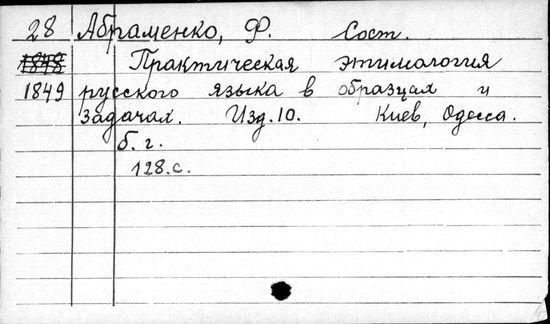 28 Абраменко, Ф. Сост.
1848 Практическая этимология
1849 русского языка в образцах и
задачах. Изд. 10. Киев, Одесса.
б. г.
128.с.